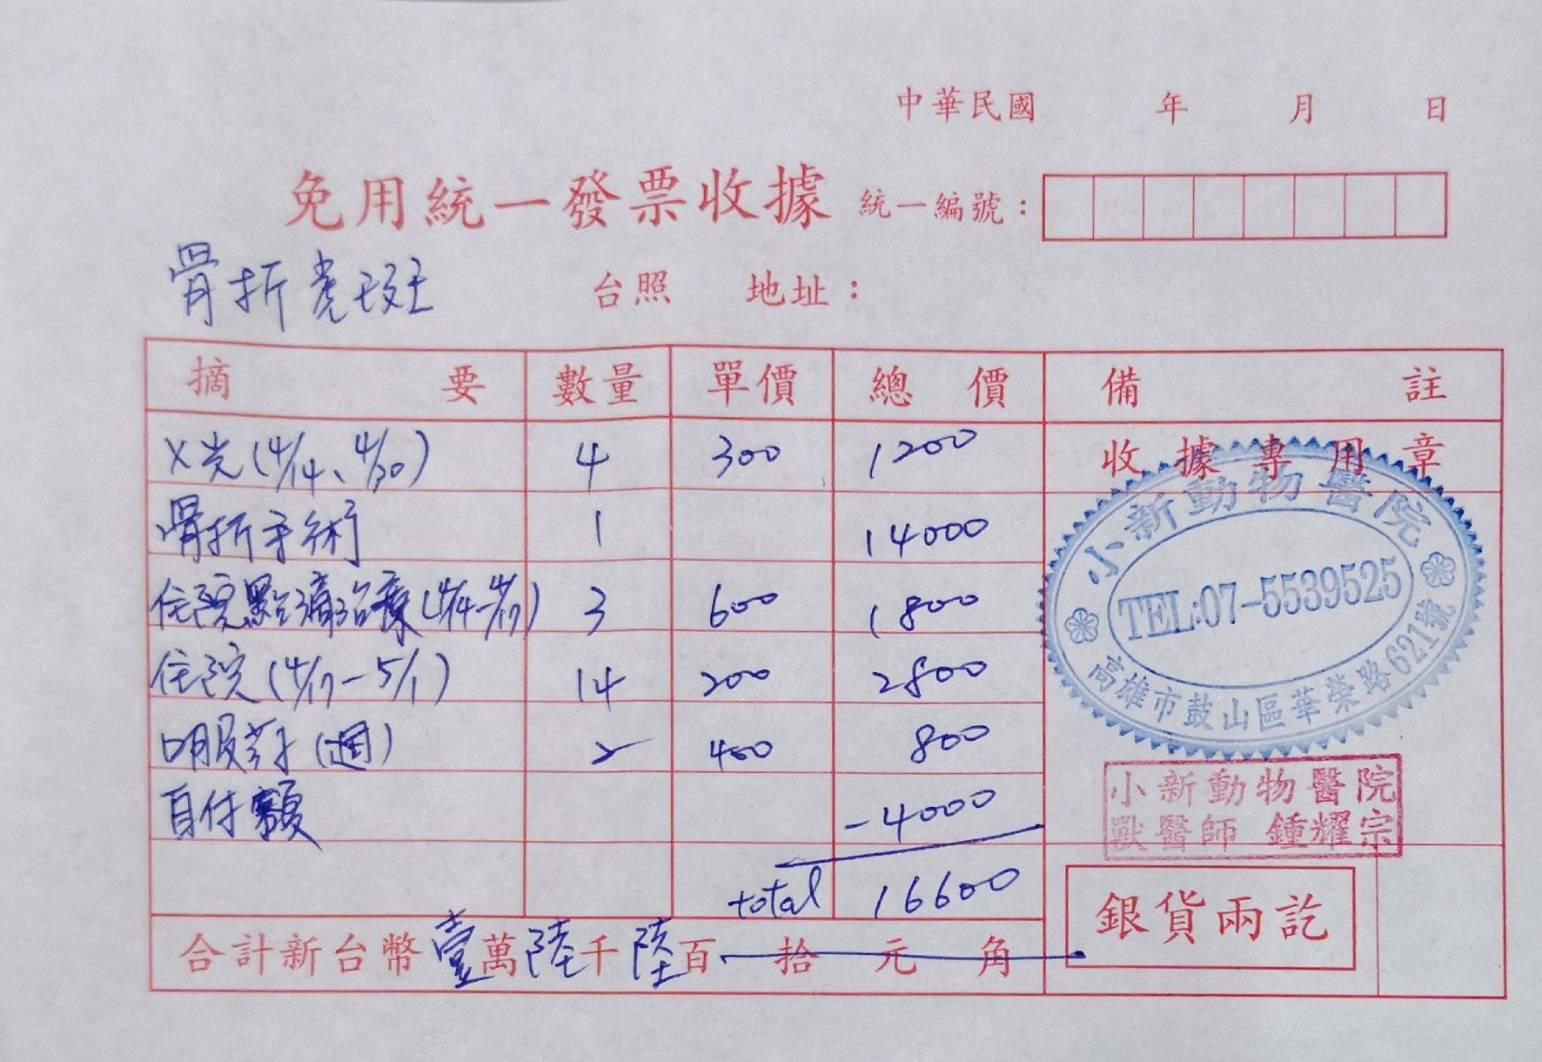 中華民國 年 月 日
免用統一發票收據 統一編號：
骨折虎斑 台照 地址：
摘要 數量 單價 總價 備註
X光(4/14、4/30) 4 300 1200 收據專用章
骨折手術 1 14000
住院點滴治療(4/14-4/17) 3 600 1800
住院(4/17-5/1) 14 200 2800
口服藥(週) 2 400 800
自付額 -4000
total 16600
合計新台幣壹萬陸千陸百拾元角
小新動物醫院
TEL:07-5539525
高雄市鼓山區華榮路621號
小新動物醫院
獸醫師 鍾耀宗
銀貨兩訖